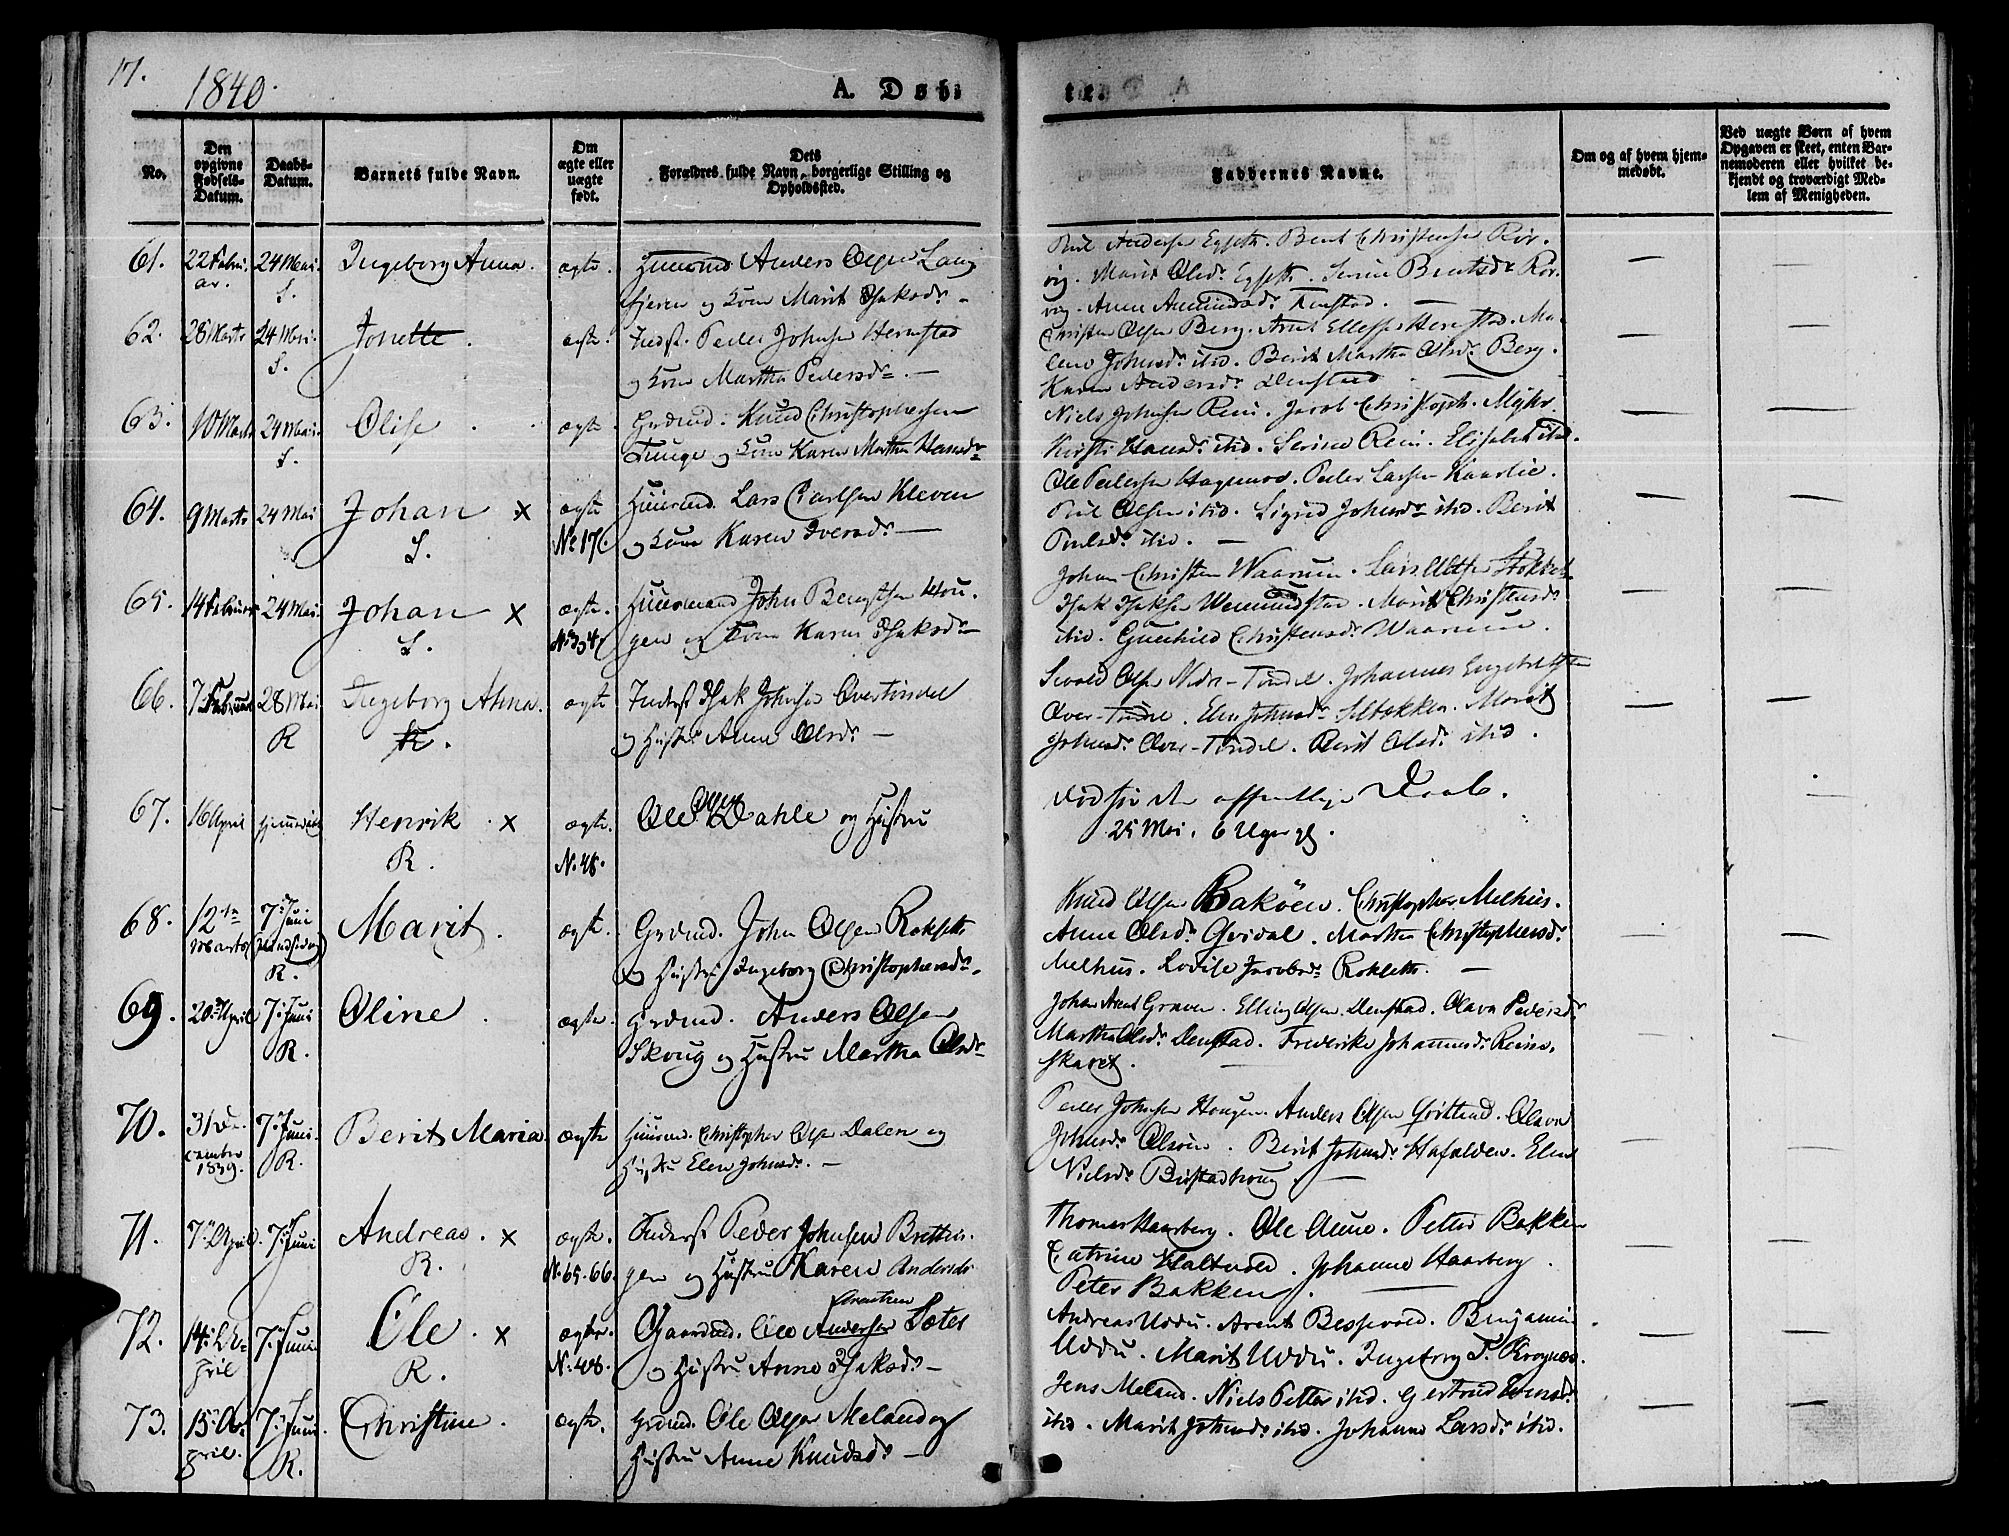 17.
1840.
A. Døb-
te.
No.
Den opgivne Fødsels-Datum.
Daabs-Datum.
Barnets fulde Navn.
Om ægte eller uægte født.
Dets Forældres fulde Navn, borgerlige Stilling og Opholdssted.
Faddernes Navne.
Om og af hvem hjemmedøbt.
Ved uægte Børn af hvem Opgaven er skeet, enten Barnemoderen eller hvilket bekjendt og troværdigt Medlem af Menigheden.
61. 22 Febru- 24 Mai. Ingeborg Anna. ægte. Anders Olsen Lang
ar. S. fjeren og Kone Marit Isaksdr. -
Andersen Egseth. Bent Christensen Rør-
vig. Marit Olsdr. Egseth. Serine Bentsdr. Rør-
vig. Anne Amundsdr.
62. 28 Marts 24 Mai. Jonette. ægte. Inderst. Peder Johnsen Hernstad
S. og Kone Martha Pedersdr. -
Christen Olsen Berg. Arnt Ellefsen Hernstad. Ma-
lene Johnsdr. itid. Berit Martha Olsdr. Berg.
Karen Andersdr. Denstad
63. 10 Marts 24 Mai. Olise ægte. Grdmd. Knud Christophersen
S. Tunge og Kone Karen Martha Hansdr.
Niels Johnsen Rein. Jacob Christoph. Myhr.
Kirsti Hansdr. itid. Serine Rein. Elisabet itid.
64. 9 Marts 24 Mai Johan x ægte Huusmd. Lars Carlsen Kleven
S. No 17. og Kone Karen Iversdr. -
Ole Pedersen Hagemo. Peder Larsen Kaarlie.
Poul Olsen itid. Sigrid Johnsdr. itid. Berit
Poulsdr. itid. -
65. 14 Februar 24 Mai Johan x ægte. Huusmand John Bengtsen Hou-
S. No 34. gen og Kone Karen Isaksdr.
Johan Christen Waarum. Lars Olsen Stokket.
Isak Isaksen Wemundstad. Marit Christensdr.
itid. Gunhild Christensdr. Waarum.
66. 7 Februar 28 Mai Ingeborg Anna. ægte Inderst Isak Johnsen Overtindel
R og Hustru Anne Olsdr. -
Sivald Olsen Nedre-Tindel. Johannes Engebretsen
Over-Tindel. Elen Johnsdr. Selbekken. Marit
Johnsdr. Over-Tindel. Berit Olsdr. itid.
67. 16 April hjemmedøbt Henrik x ægte. Ole Olsen Dahle og Hustru
R. N. 48.
Død før den offentlige Daab.
25 Mai. 6 Uger gl.
68. 12te 7de Juni Marit. ægte. Grdmd. John Olsen Rokseth
Marts (Pindsedag) og Hustru Ingeborg Christophersdr.
R.
Knud Olsen Bakøen. Christopher Melhus.
Anne Olsdr. Qvidal. Martha Christophersdr.
Melhus. Lovise Jacobsdr. Rokseth. -
69. 20de April 7de Juni Oline ægte. Grdmd. Anders Olsen
R. Skoug og Hustru Martha Olsdr.
Johan Arnt Graven. Elling Olsen Denstad. Olava Pedersdr.
Martha Olsdr. Denstad. Frederike Johannesdr. Reins-
skaret.
70. 31 De- 7de Juni. Berit Maria ægte Huusmd. Christopher Olsen Dalen og
cember R. Hustru Elen Johnsdr. -
1839.
Peder Johnsen Hougen. Anders Olsen. Olava
Johnsdr. Olsøn. Berit Johnsdr. Hafalden. Elen
Nielsdr.
71. 7de April. 7de Juni Andreas. x ægte. Inderst Peder Johnsen Brettin-
R. N. 65. 66. gen og Hustru Karen Andersdr
Thomas Haarberg. Ole Aune. Petter Bakken
Catrine. Johanne Haarberg.
Peter Bakken.
72. 14de A- 7de Juni Ole. x ægte. Gaardmd. Ole Andersen Arentsen Sæter
pril R. N. 48. og Hustru Anne Isaksdr -
Andreas Uddu. Arent Bessevold. Benjamin
Uddu. Marit Uddu. Ingeborg T. Krognes.
73. 15de A- 7de Juni. Christine. ægte. Grdmd. Ole Olsen Meland og
pril. R. Hustru Anne Knudsdr -
Jens Meland. Niels Petter itid. Gjertrud Evensdr.
itid. Marit Johnsdr. itid. Johanna Larsdr. itid.